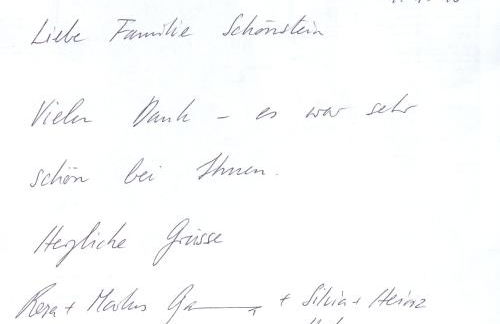 Liebe Familie Schönstein
Vielen Dank – es war sehr
schön bei Ihnen.
Herzliche Grüsse
+ Markus + Silvia + Heinz